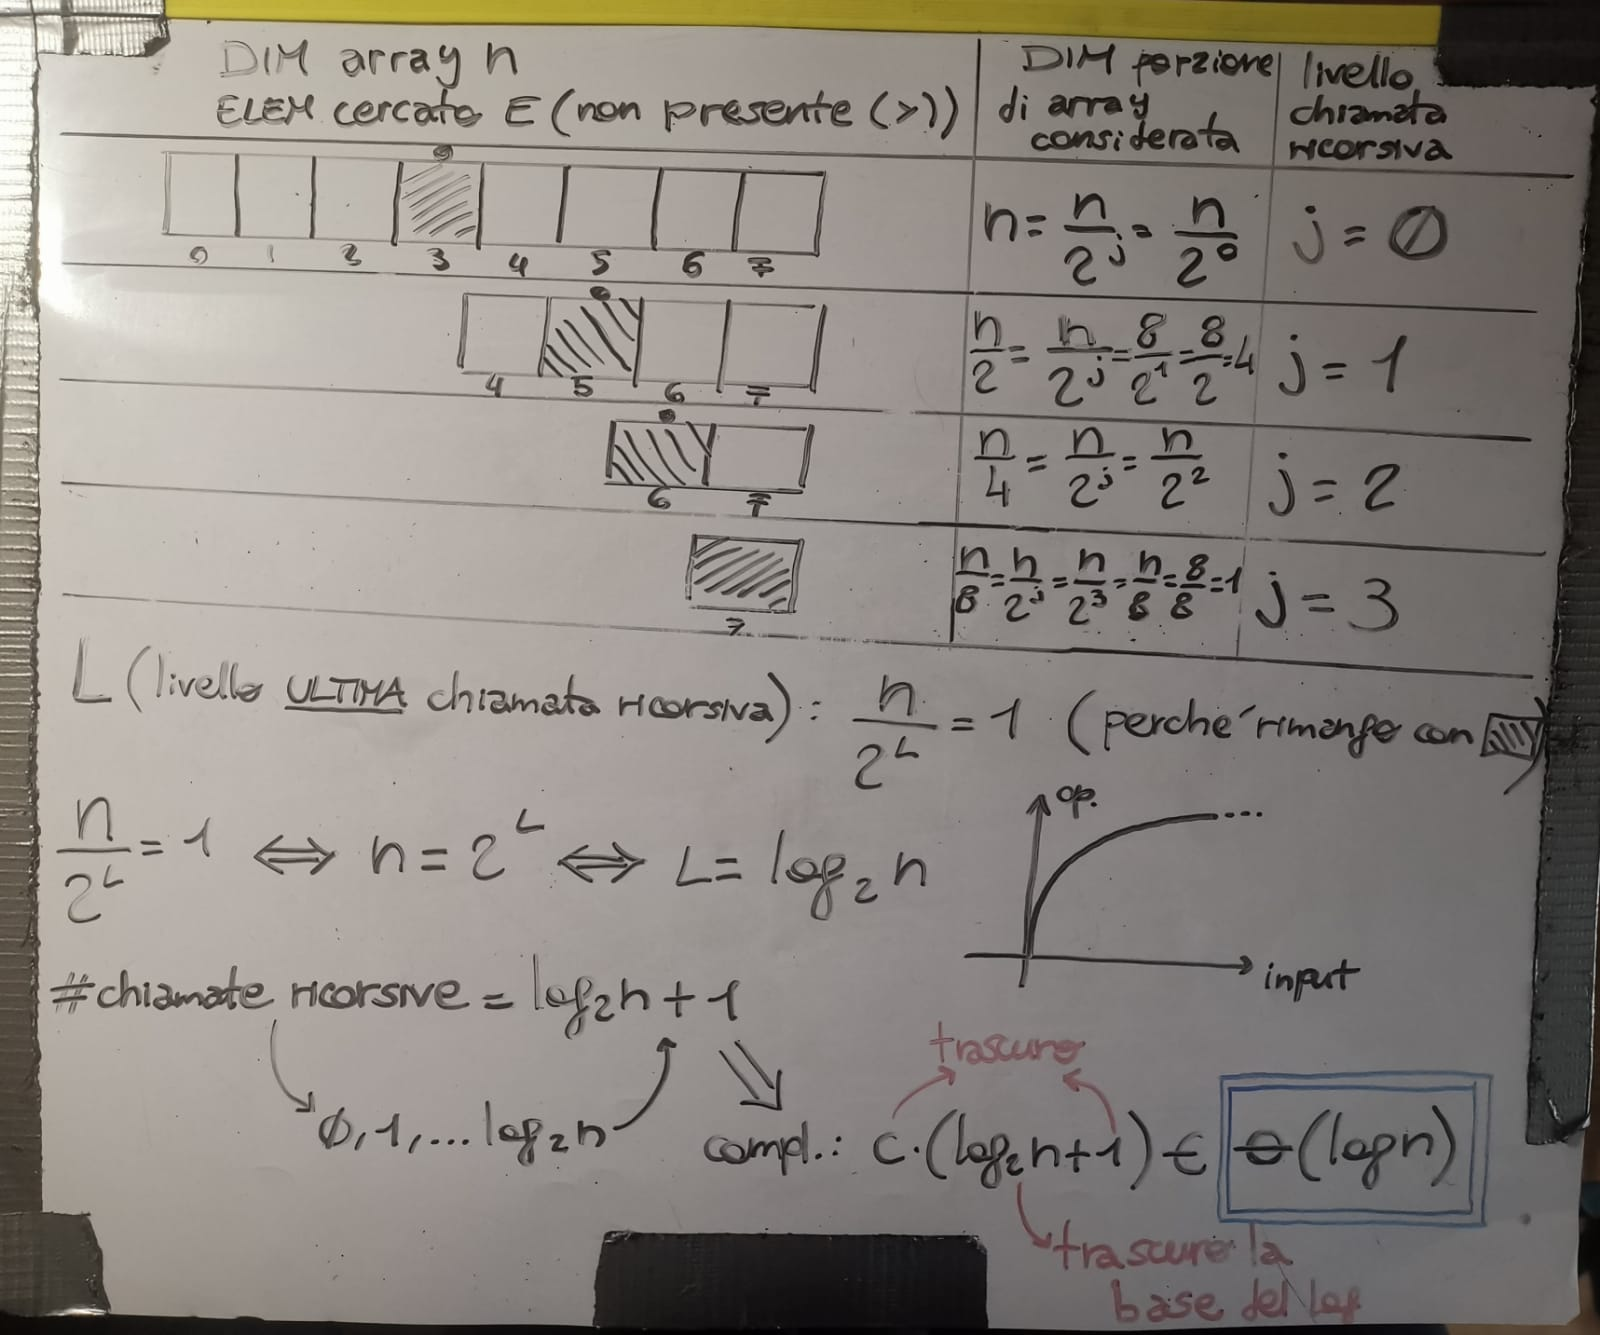 DIM array n
ELEM cercato E (non presente (>))
DIM porzione di array considerata
livello chiamata ricorsiva
0 1 2 3 4 5 6 7
n = n/2^j = n/2^0
j = 0
4 5 6 7
n/2 = n/2^j = 8/2^1 = 8/2 = 4
j = 1
6 7
n/4 = n/2^j = n/2^2
j = 2
7
n/8 = n/2^j = n/2^3 = n/8 = 8/8 = 1
j = 3
L (livello ULTIMA chiamata ricorsiva) : n/2^L = 1 (perché rimango con )
n/2^L = 1 ⟺ n = 2^L ⟺ L = log₂ n
op.
input
#chiamate ricorsive = log₂n + 1
0, 1, ... log₂n
trascuro
compl.: c·(log₂n+1) ∈ Θ(log n)
trascuro la
base del log